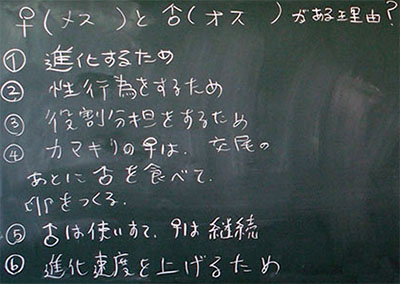 ♀(メス)と♂(オス)がある理由?
① 進化するため
② 性行為をするため
③ 役割分担をするため
④ カマキリの♀は、交尾の
あとに♂を食べて、
卵をつくる。
⑤ ♂は使いすて、♀は継続
⑥ 進化速度を上げるため